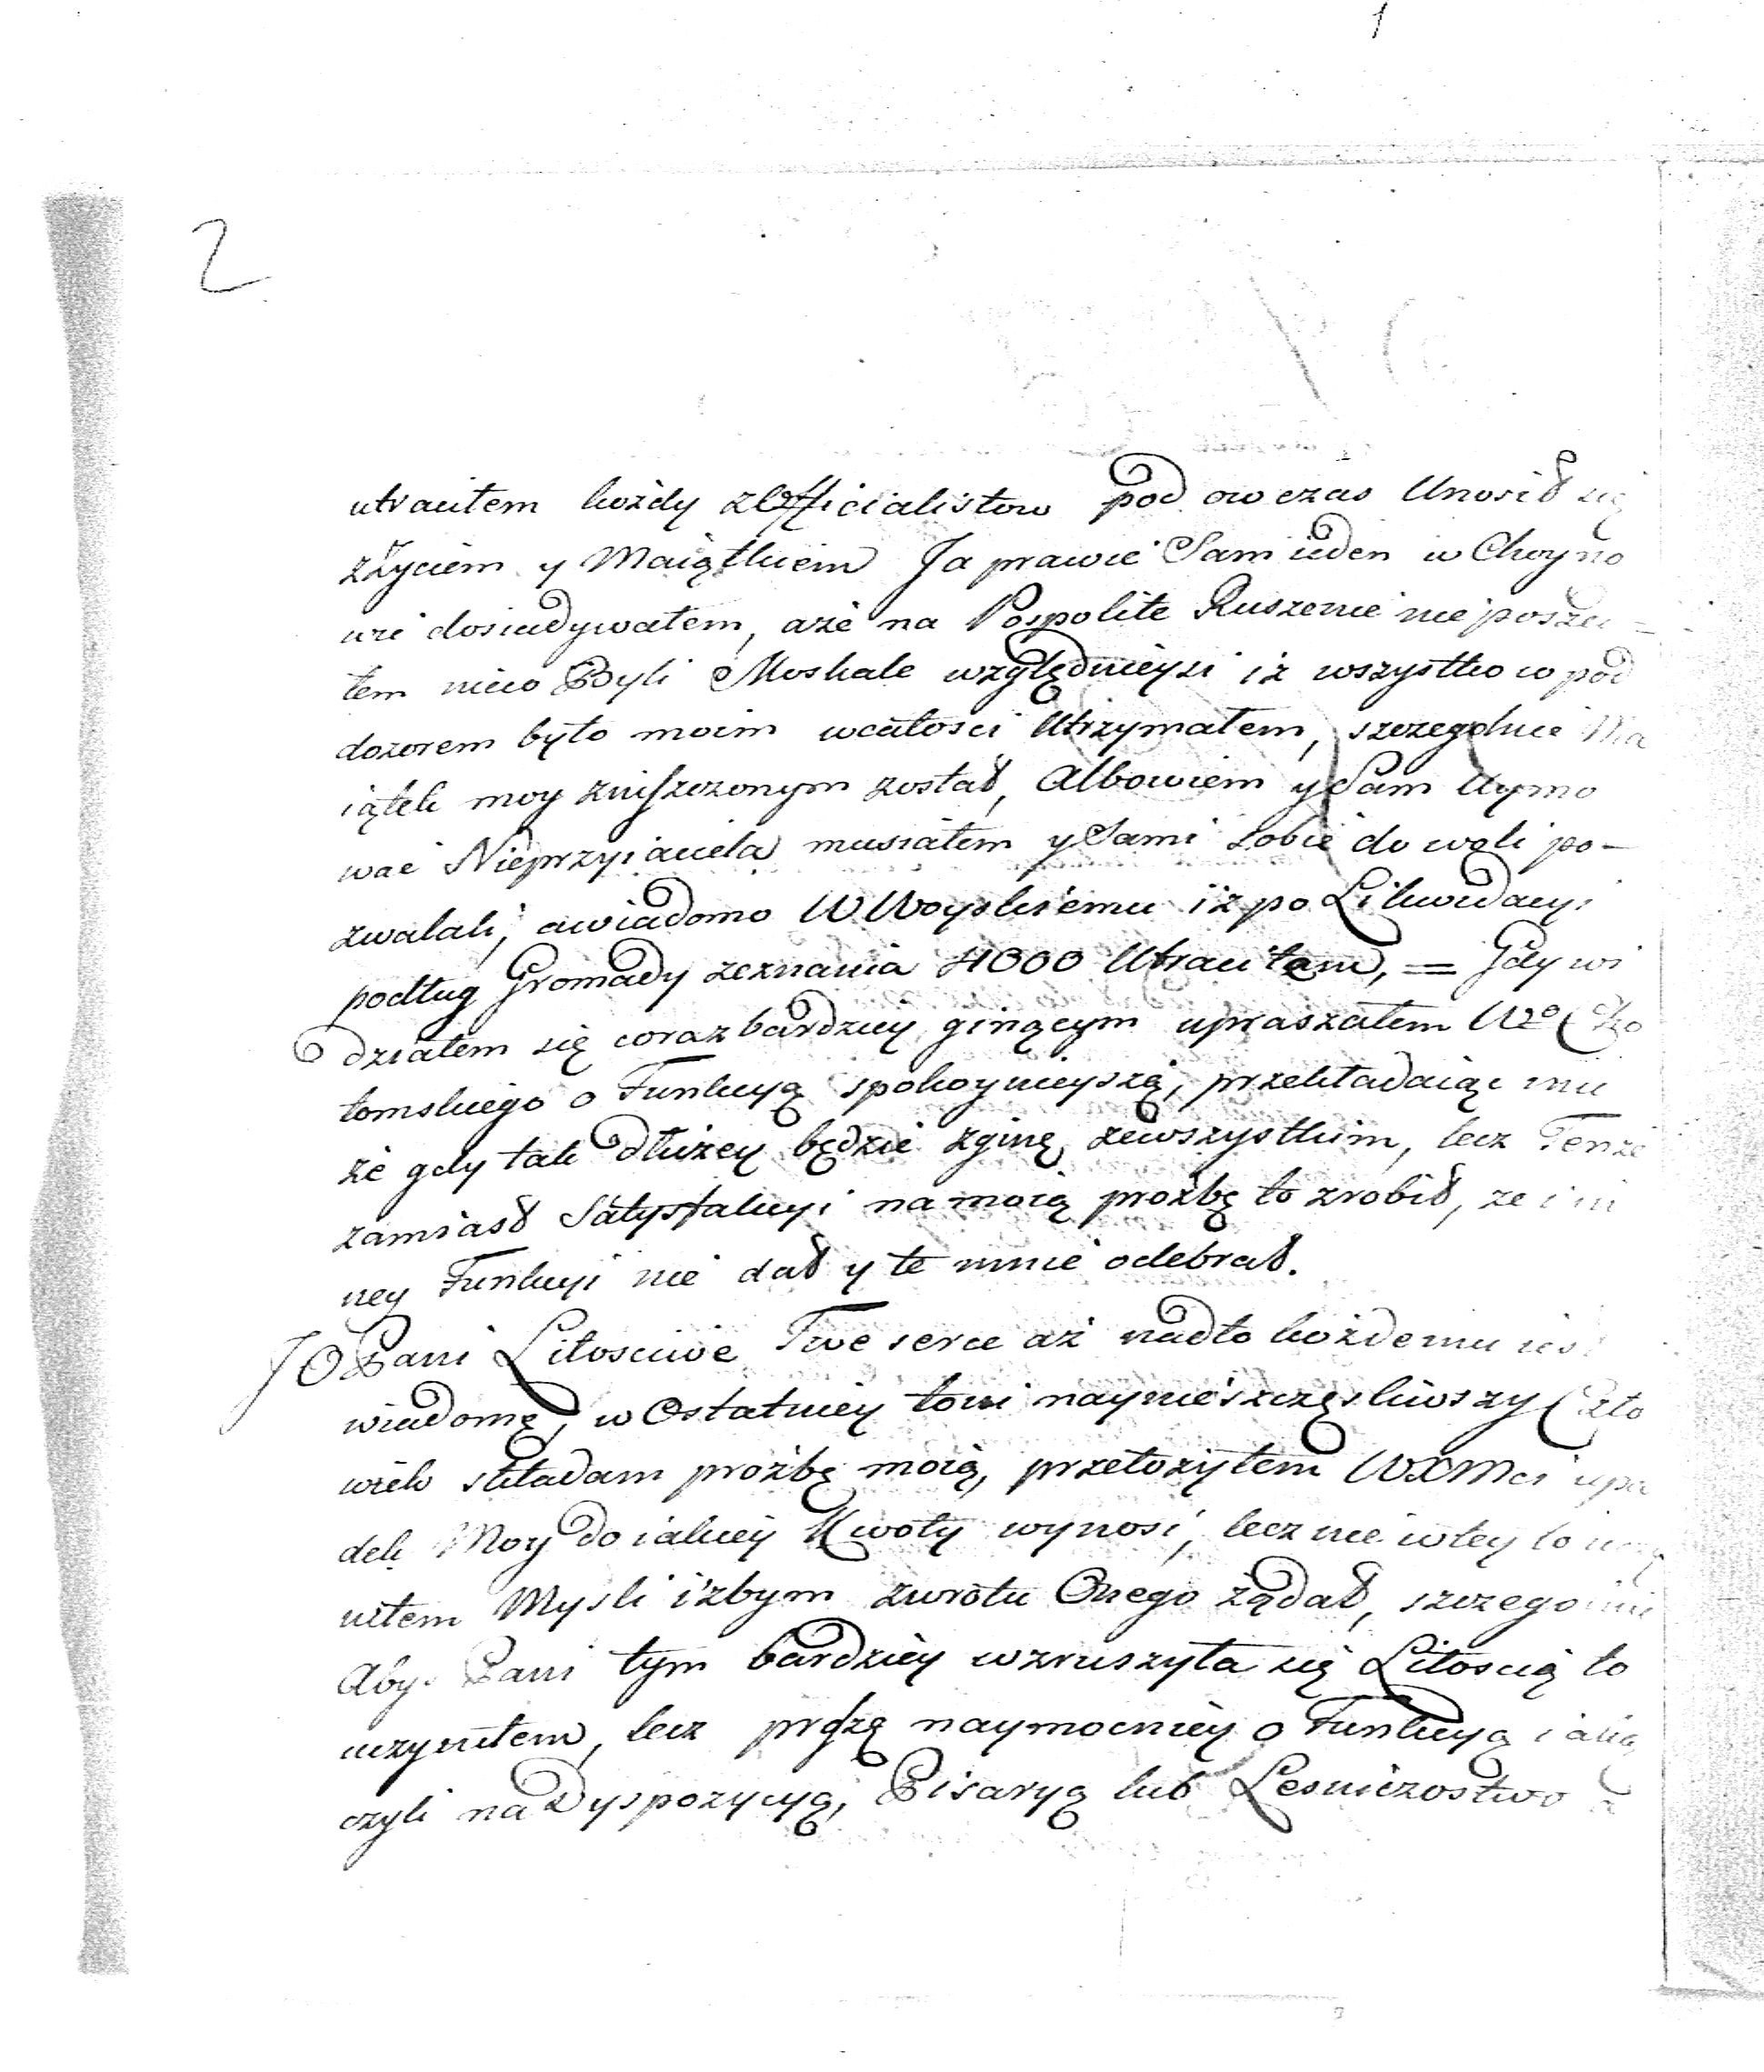 1
2
utraciłem kożdy z Officialistow pod ow czas Unosił się
z Życiem y Maiątkiem Ja prawie Sam ieden w Choyno
wie dosiadywałem, aże na Pospolite Ruszenie nie poszed=
łem nieco Byli Moskale względnieysi iż wszystko co pod
dozorem było moim wcałosci Utrzymałem, szczegolnie Ma
iątek moy zniszczonym został, Albowiem y Sam Uymo
wać Nieprzyiaciela musiałem y Sami sobie do woli po-
zwalali, a wiadomo W Woyskiemu iż po Likwidacyi
podług Gromady zeznania 4000 Utraciłem, = Gdy wi
działem się coraz bardziey ginącym upraszałem Wo
łomskiego o Funkcyą spokoynieyszą, przekładaiąc mu
że gdy tak dłużey będzie zginę zewszystkim, lecz Tenże
zamiasł Satysfakcyi na moią proźbę to zrobił, ze i in
ney Funkcyi nie dał y te mnie odebrał.
JO Pani Litosciwe Twe serce aż nadto kożdemu iest
wiadomę, w Ostatniey toni naynieszczęsliwszy Czło
wiek składam proźbę moią, przełożyłem WXMci upa
dek Moy do iakiey Kwoty wynosi, lecz nie wtey to
niłem Mysli iżbym zwrotu Onego żądał, szczegolnie
Aby Pani tym bardziey wzruszyła się Litoscią to
uczyniłem, lecz proszę naymocniey o Funkcyą iaką
czyli na Dyspozycyą, Pisaryą lub Lesniczostwo